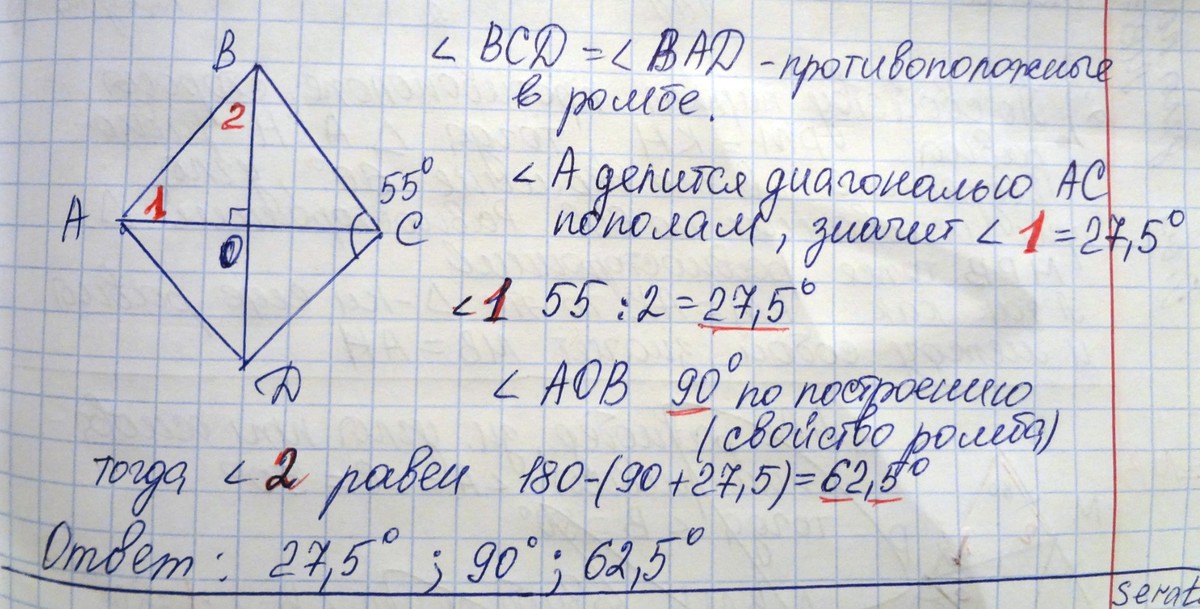 B
∠ BCD = ∠ BAD - противоположные
в ромбе.
2
55°
∠ А делится диагональю АС
A 1 C
пополам, значит ∠ 1 = 27,5°
O
∠1 55 : 2 = 27,5°
D
∠ AOB 90° по построению
(свойство ромба)
тогда ∠ 2 равен 180-(90+27,5)=62,5°
Ответ: 27,5° ; 90° ; 62,5°